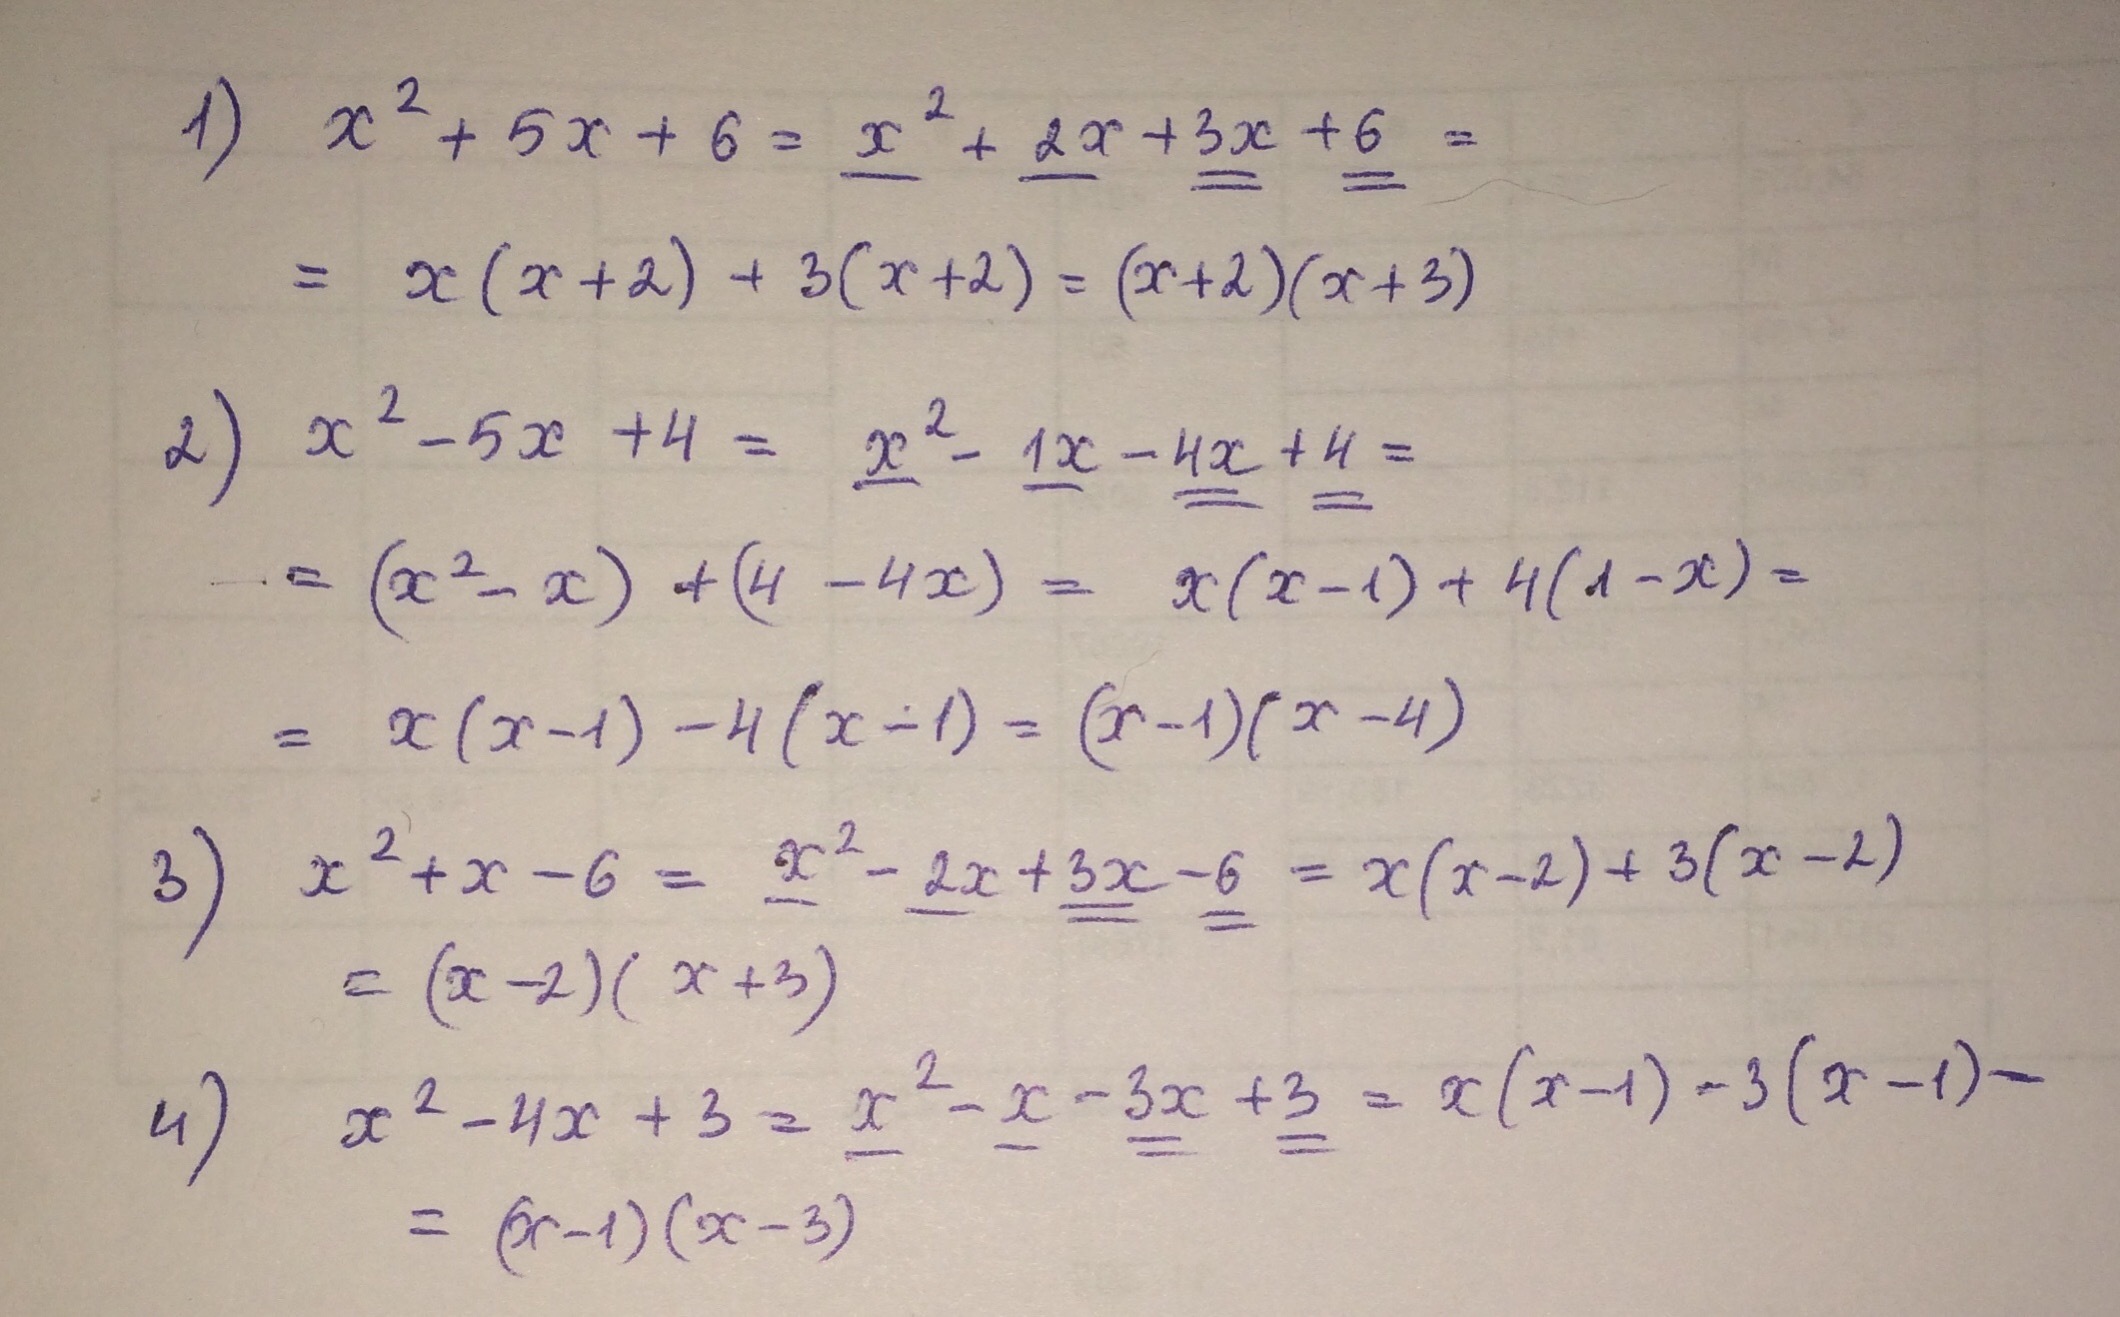 1) x² + 5x + 6 = x² + 2x + 3x + 6 =
= x(x+2) + 3(x+2) = (x+2)(x+3)
2) x² - 5x + 4 = x² - 1x - 4x + 4 =
= (x² - x) + (4 - 4x) = x(x-1) + 4(1-x) =
= x(x-1) - 4(x-1) = (x-1)(x-4)
3) x² + x - 6 = x² - 2x + 3x - 6 = x(x-2) + 3(x-2)
= (x-2)(x+3)
4) x² - 4x + 3 = x² - x - 3x + 3 = x(x-1) - 3(x-1) -
= (x-1)(x-3)